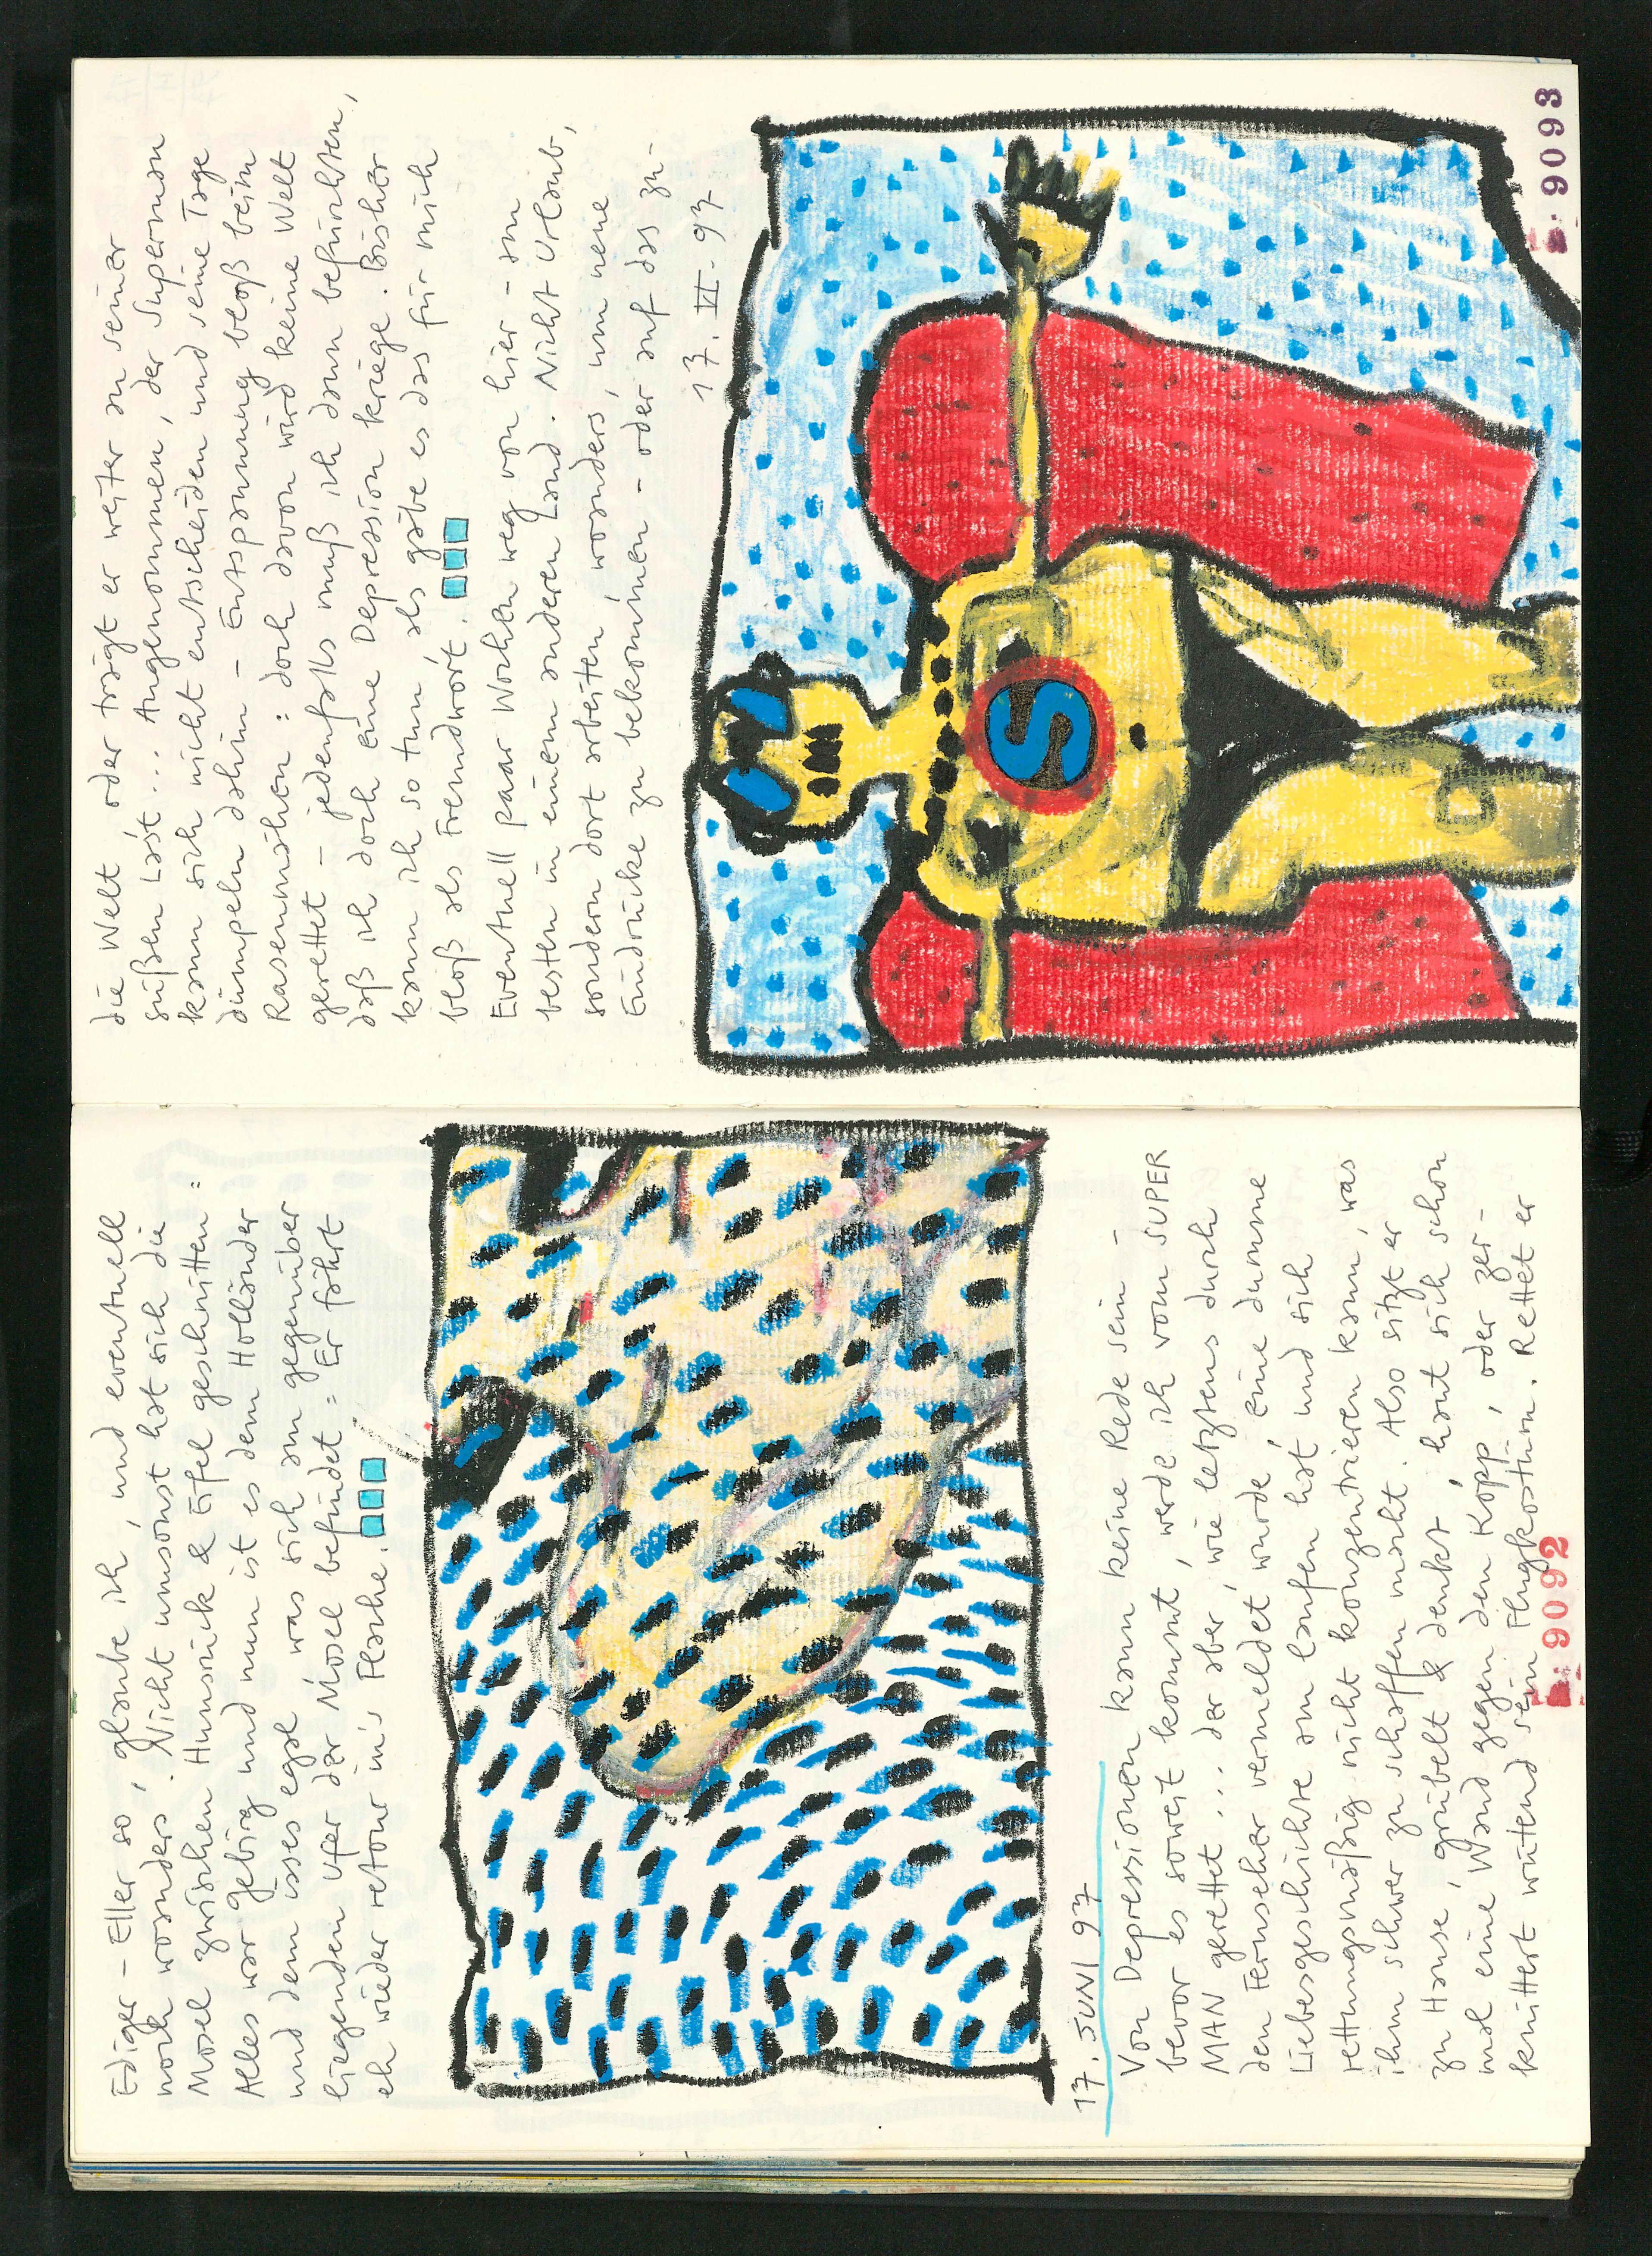 Ediger-Eller so, glaube ich, und eventuell
noch woanders. Nicht umsonst hat sich die
Mosel zwischen Hunsrück & Eifel geschnitten:
Alles war gebirg und nun ist es dem Holländer
und dem isses egal, was sich am gegenüber
liegendem Ufer der Mosel befindet: Er fährt
eh wieder retour in's Flache.
17. JUNI 97
Von Depressionen kann keine Rede sein -
bevor es soweit kommt, werde ich vom SUPER
MAN gerettet... der aber, wie letztens durch
den Fernseher vermeldet wurde, eine dumme
Liebesgeschichte am laufen hat und sich
rettungsmäßig nicht konzentrieren kann, was
ihm schwer zu schaffen macht. Also sitzt er
zu Hause, grübelt & denkt, haut sich schon
mal eine Wand gegen den Kopp, oder zer-
knittert wütend sein Flugkostüm. Rettet er
E. 9092
die Welt oder trägt er weiter an seiner
süßen Last... Angenommen, der Superman
kann sich nicht entscheiden und seine Tage
dümpeln dahin - Entspannung bloß beim
Rasenmähen: doch davon wird keine Welt
gerettet - jedenfalls muß ich dann befürchten,
daß ich doch eine Depression kriege. Bisher
kann ich so tun als gäbe es das für mich
bloß als Fremdwort.
Eventuell paar Wochen weg von hier - am
besten in einem anderen Land. Nicht Urlaub,
sondern dort arbeiten, woanders, um neue
Eindrücke zu bekommen - oder auf das zu-
17. VI. 97
S
E. 9093